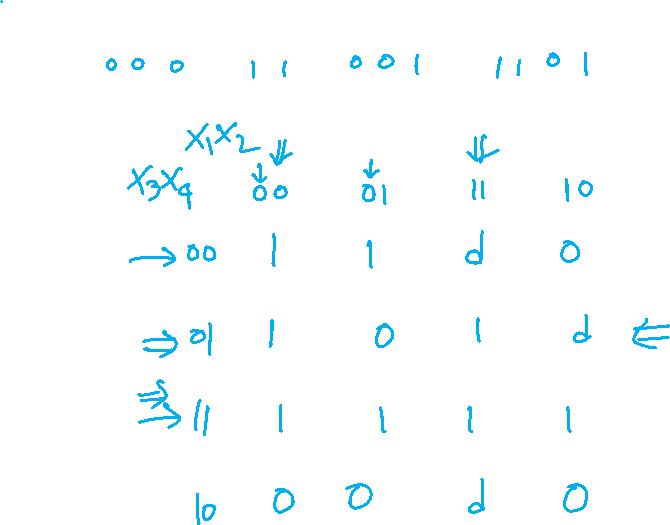 000 11 001 1101
X1X2
X3X4 00 01 11 10
→00 1 1 d 0
⇒01 1 0 1 d ⇐
⇒→11 1 1 1 1
10 0 0 d 0